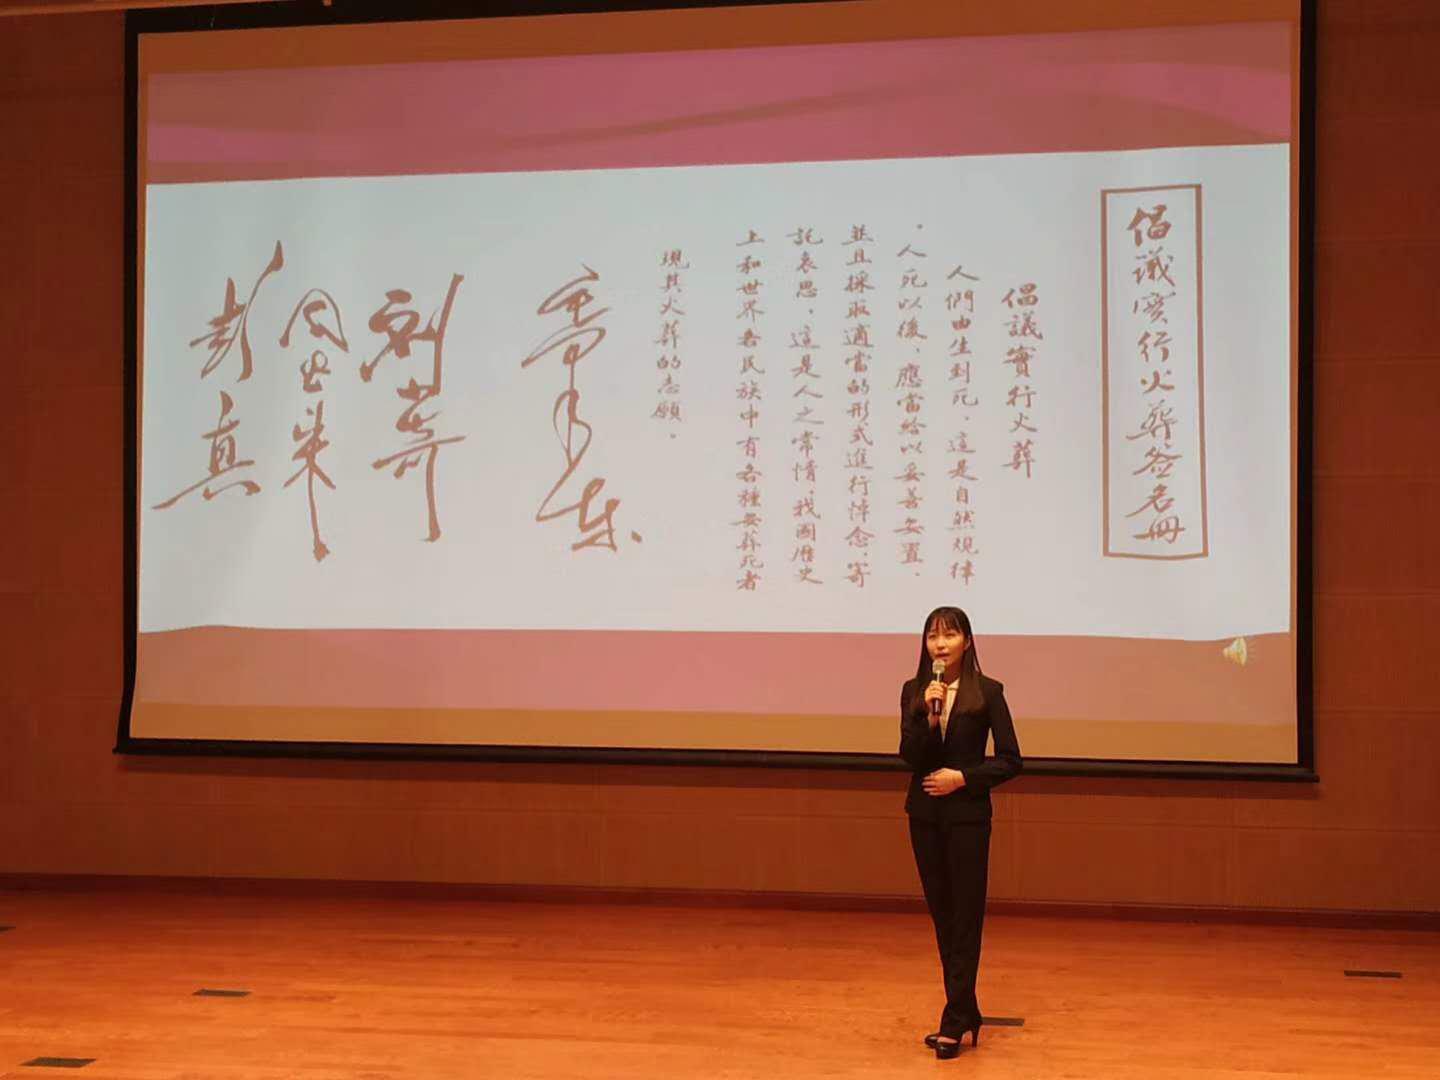 倡議实行火葬签名冊
倡議實行火葬
人們由生到死，這是自然規律
。人死以後，應當給以妥善安置，
並且採取適當的形式進行悼念，寄
託哀思，這是人之常情。我國歷史
上和世界各民族中有各種安葬死者
現其火葬的志願。
毛泽东
刘少奇
周恩来
彭真